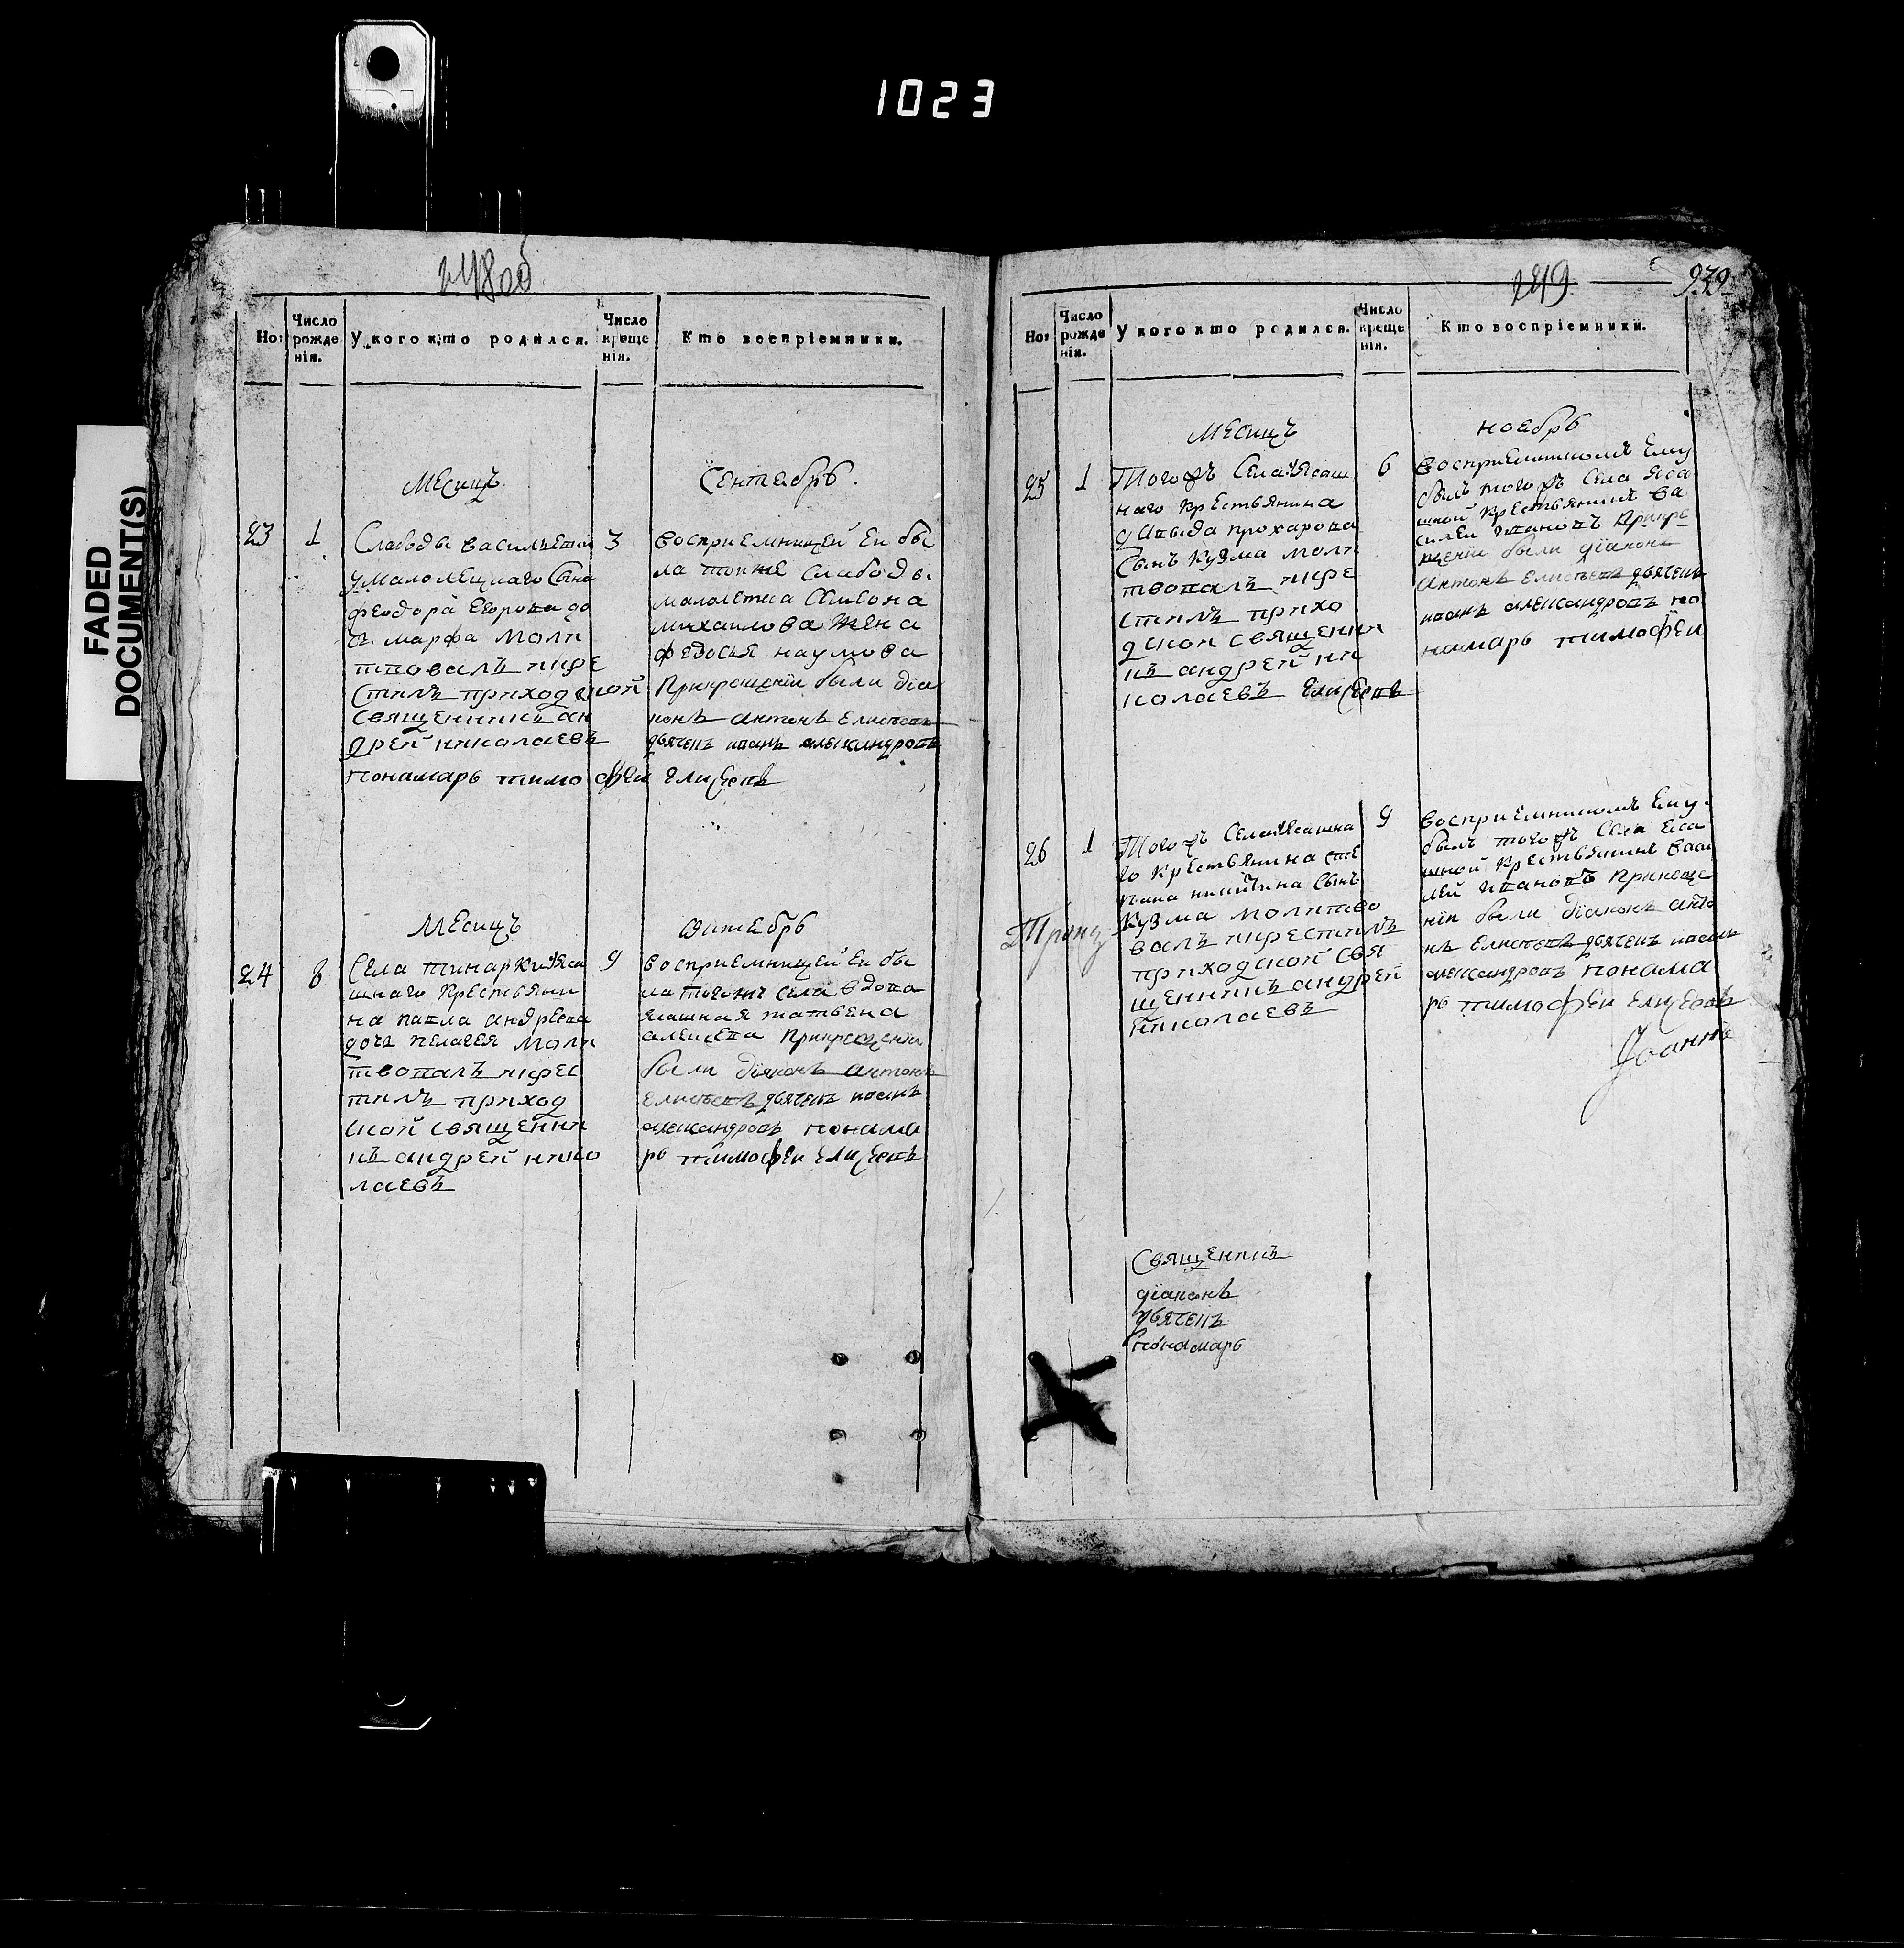 1023
FADED
DOCUMENT(S)
248об
Но:
Число рожденія.
У кого кто родился.
Число крещенія.
Кто воспріемники.
Месицъ
Сентябрь.
23
1
3
Слабоды василъевки
умаломецкаго сына
феодора егорова до
чъ марфа моли
твовалъ икре
стилъ приходской
священникъ ан
дрей николаевъ
понамарь тимофеи елисеевъ
восприемницей еи бы
ла тоиже слабоды
михаилова жена
федосья наумова
Прикрещении были діа
конъ антонъ елисеевъ
дьячекъ иванъ александровъ
Месицъ
октебрь
24
8
9
Села тинарки яса
шнаго крестьяни
на павла андреева
дочь пелагея моли
твовалъ икрес
тилъ приход
ской священни
къ андрей нико
лаевъ
восприемницей еи бы
ла тогожъ села вдова
ясашная татьена
алексеева Прикрещении
были діяконъ антонъ
елисеевъ дьячекъ иванъ
александровъ понама
рь тимофеи елисеевъ
249
939
Но:
Число рожденія.
У кого кто родился.
Число крещенія.
Кто воспріемники.
Месицъ
ноябрь
25
1
6
Тогожъ села ясаш
наго крестьянина
давыда прохарова
сынъ кузма моли
твовалъ икре
стилъ прихо
дской священни
къ андрей ни
колаевъ елисеевъ
восприемникомъ ему
былъ тогожъ села яса
шной крестьянинъ ва
силей ивановъ Прикре
щении были діаконъ
антонъ елисеевъ дьячекъ
иванъ александровъ по
намарь тимофеи
26
1
9
Тогожъ села ясашна
го крестьянина сте
пана никитина сынъ
кузма молитво
валъ икрестилъ
приходской свя
щенникъ андрей
николаевъ
восприемникомъ ему
былъ тогожъ села яса
шной крестьянинъ васи
лей ивановъ Прикреще
нии были діаконъ анто
нъ елисеевъ дьячекъ иванъ
александровъ понама
рь тимофеи елисеевъ
Іоаннъ
Священникъ
діаконъ
дьячекъ
понамарь